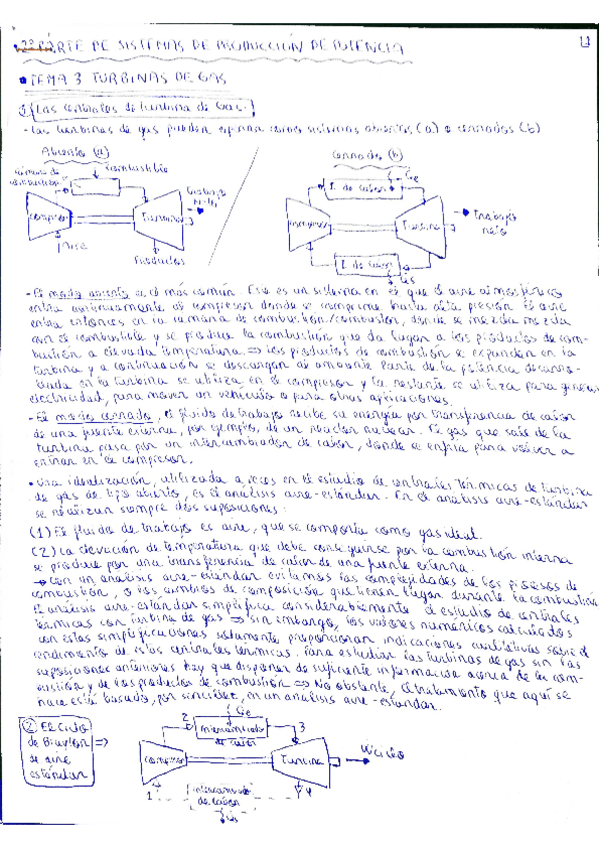 2ª PARTE DE SISTEMAS DE PRODUCCIÓN DE POTENCIA
TEMA 3 TURBINAS DE GAS
1. Las centrales de turbina de Gas.
- Las turbinas de gas pueden operar como sistemas abiertos (a) o cerrados (b)
Abierto (a)
Cerrado (b)
cámara de combustión
combustible
compresor
Turbina
Aire
Productos
I. de calor
Q̇e
compresor
Turbina
Trabajo neto
I. de calor
Q̇s
- El modo abierto es el más común. Este es un sistema en el que el aire atmosférico
entra continuamente al compresor donde se comprime hasta alta presión. El aire
entra entonces en la cámara de combustión/combustor, donde se mezcla
con el combustible y se produce la combustión que da lugar a los productos de com-
bustión a elevada temperatura ⇒ los productos de combustión se expanden en la
turbina y a continuación se descargan al ambiente. Parte de la potencia desarro-
llada en la turbina se utiliza en el compresor y la restante se utiliza para generar
electricidad, para mover un vehículo o para otras aplicaciones.
- El modo cerrado, el fluido de trabajo recibe su energía por transferencia de calor
de una fuente externa, por ejemplo, de un reactor nuclear. El gas que sale de la
turbina pasa por un intercambiador de calor, donde se enfría para volver a
entrar en el compresor.
• Una idealización, utilizada a veces en el estudio de centrales térmicas de turbina
de gas de tipo abierto, es el análisis aire-estándar. En el análisis aire-estándar
se realizan siempre dos suposiciones:
(1) El fluido de trabajo es aire, que se comporta como gas ideal.
(2) La elevación de temperatura que debe conseguirse por la combustión interna
se produce por una transferencia de calor de una fuente externa.
→ con un análisis aire-estándar evitamos las complejidades de los procesos de
combustión, o los cambios de composición que tienen lugar durante la combustión
El análisis aire-estándar simplifica considerablemente el estudio de centrales
térmicas con turbina de gas ⇒ sin embargo, los valores numéricos calculados
con estas simplificaciones solamente proporcionan indicaciones cualitativas sobre el
rendimiento de estas centrales térmicas. Para estudiar las turbinas de gas sin las
suposiciones anteriores hay que disponer de suficiente información acerca de la com-
bustión y de los productos de combustión ⇒ No obstante, el tratamiento que aquí se
hace está basado, por sencillez, en un análisis aire-estándar.
2. El Ciclo
de Brayton
de aire
estándar
⇒
Q̇e
2
intercambiador
de calor
3
compresor
Turbina
Ẇciclo
1
intercambiador
de calor
4
Q̇s